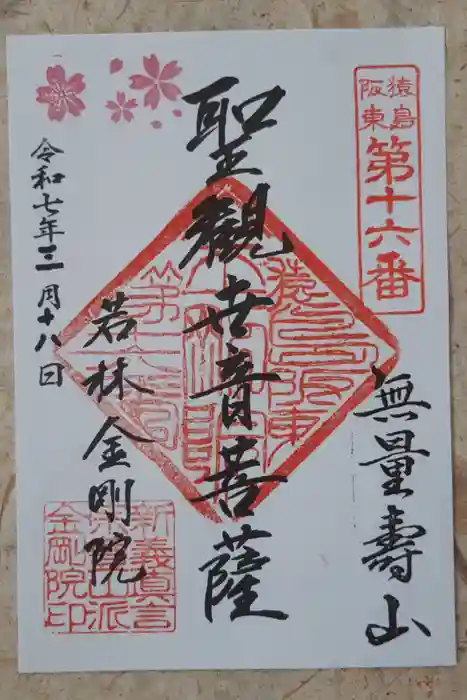 猿島
阪東
第十六番
無量壽山
聖觀世音菩薩
猿島阪東
若林金剛院
令和七年三月十八日
新義真言
金剛院印